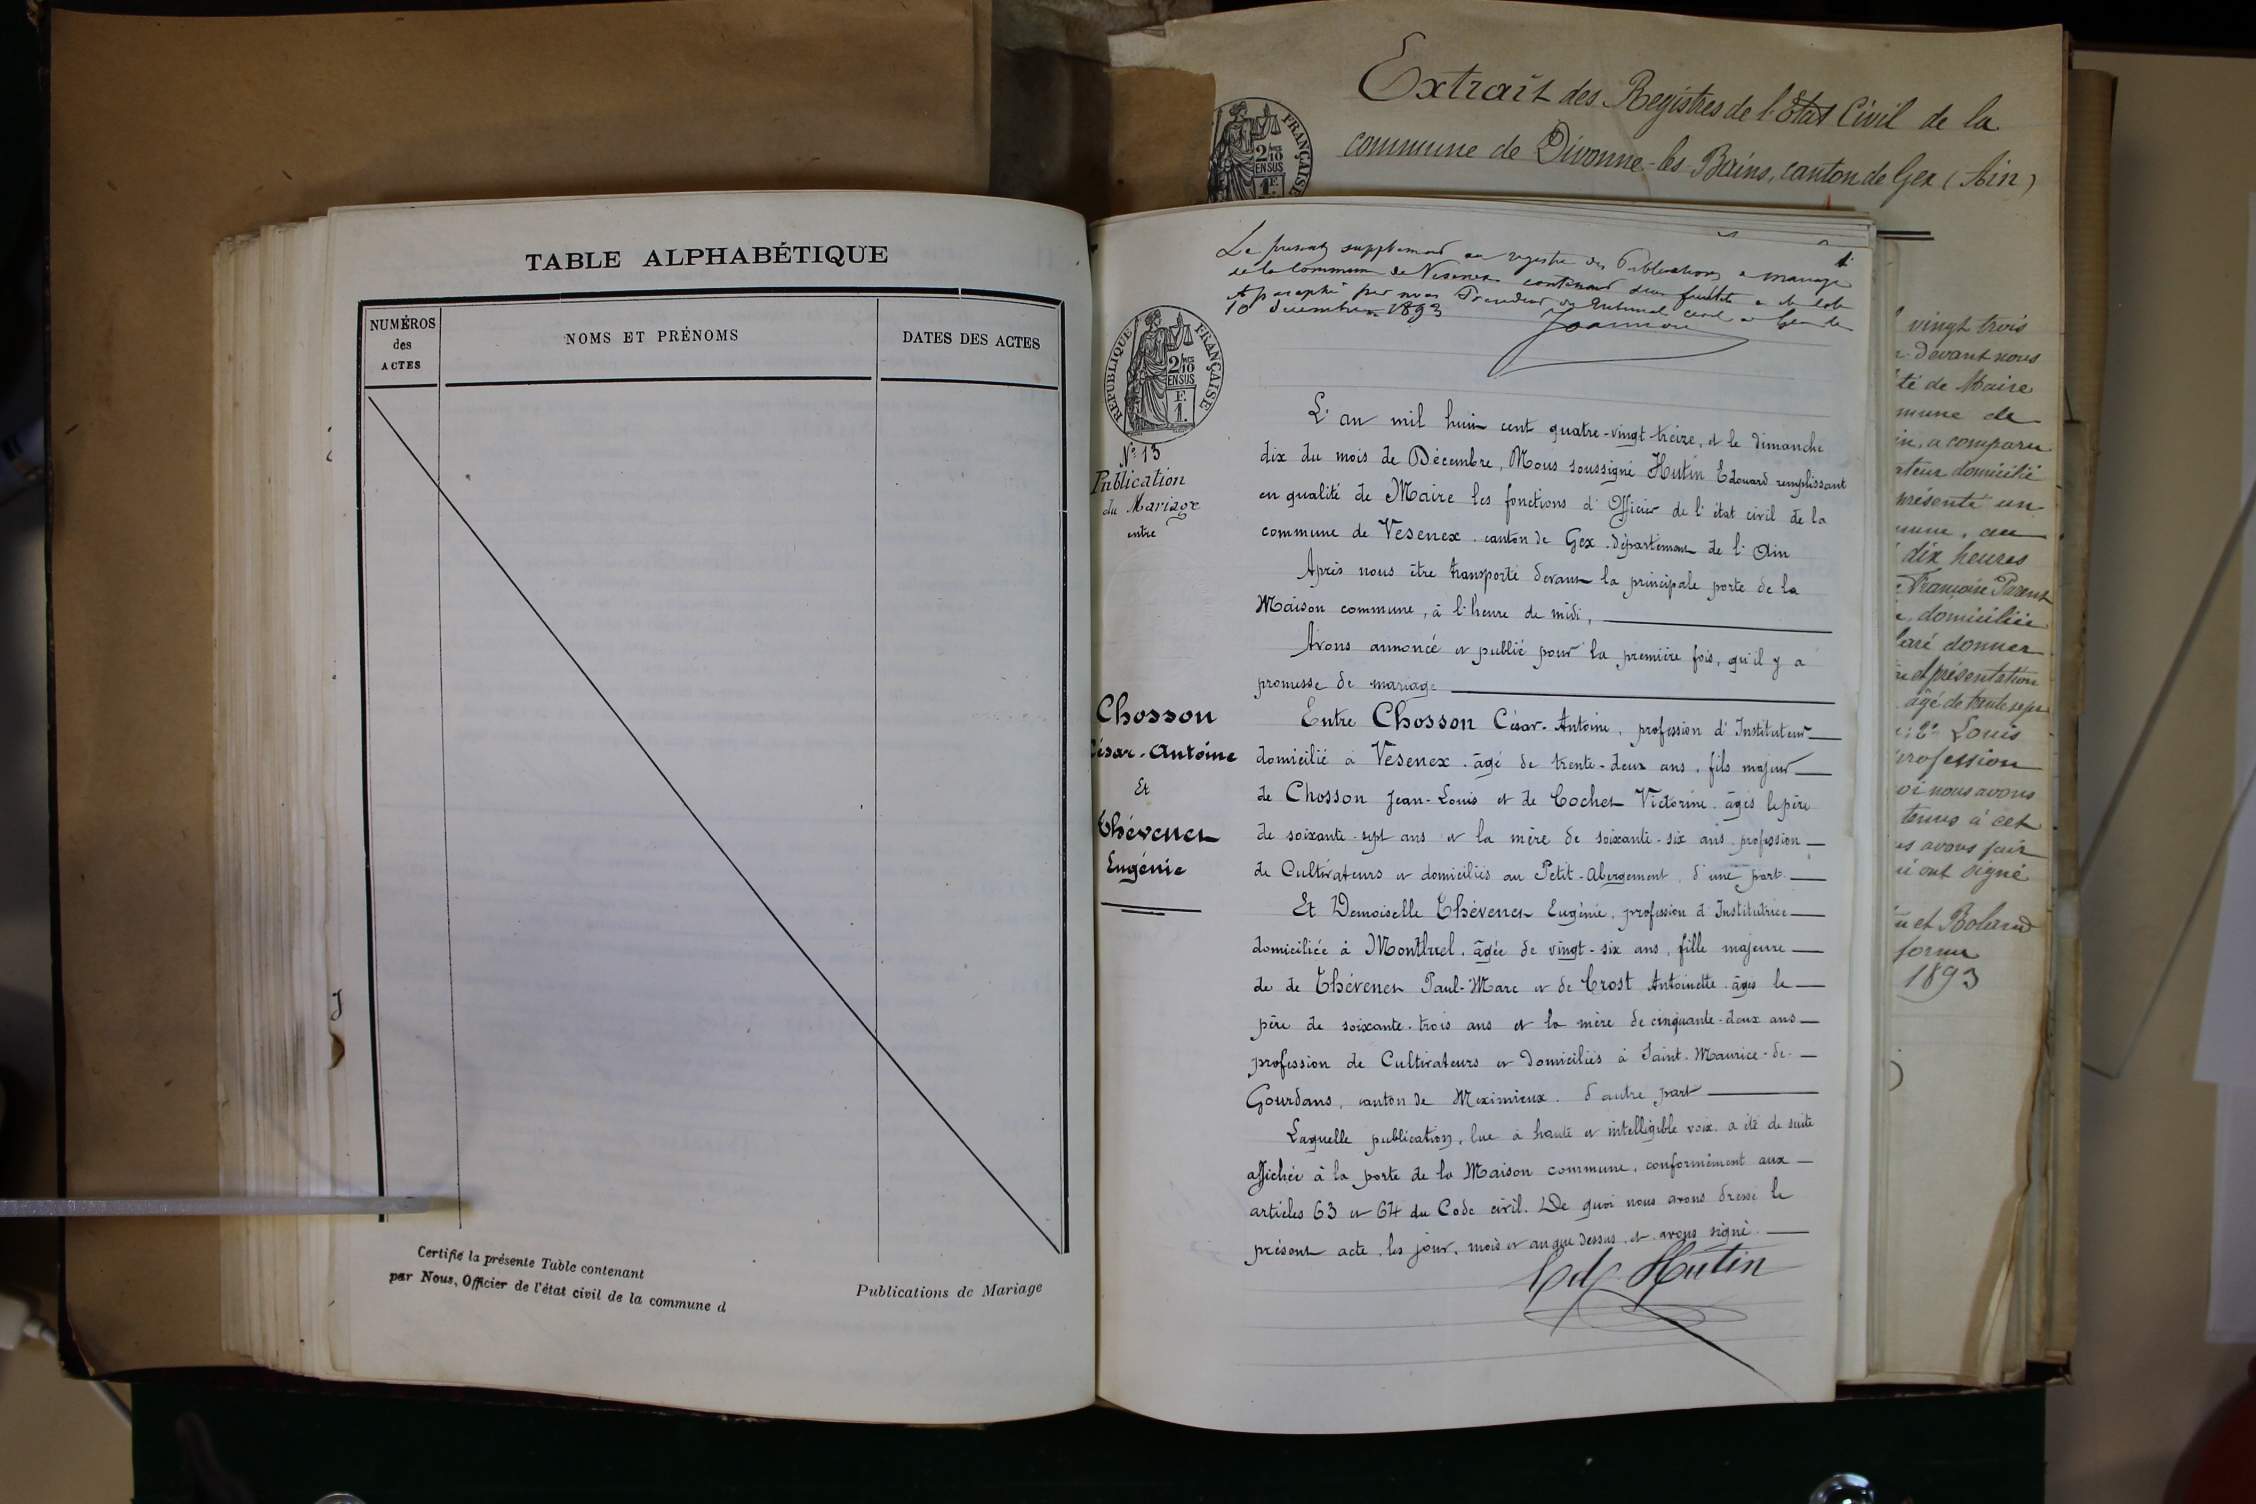 TABLE ALPHABÉTIQUE
NUMÉROS
des
ACTES
NOMS ET PRÉNOMS
DATES DES ACTES
Certifié la présente Table contenant
par Nous, Officier de l'état civil de la commune d
Publications de Mariage
Extrait des Registres de l'Etat Civil de la
commune de Divonne-les-Bains, canton de Gex (Ain)
FRANÇAISE
2/10
EN SUS
1 F.
1
Le présent supplément au registre des Publications de mariage
de la commune de Vesenex contenant deux feuillets a été coté
et paraphé par nous Président du Tribunal civil de Gex le
10 décembre 1893
RÉPUBLIQUE FRANÇAISE
2/10
EN SUS
F.
1.
Nº 13
Publication
du Mariage
entre
Chosson
César-Antoine
Et
Thévenet
Eugénie
L'an mil huit cent quatre-vingt-treize, et le dimanche
dix du mois de Décembre, Nous soussigné Hutin Edouard remplissant
en qualité de Maire les fonctions d'Officier de l'état civil de la
commune de Vesenex, canton de Gex, département de l'Ain
Après nous être transporté devant la principale porte de la
Maison commune, à l'heure de midi,
Avons annoncé et publié pour la première fois, qu'il y a
promesse de mariage
Entre Chosson César-Antoine, profession d'Instituteur
domicilié à Vesenex, âgé de trente-deux ans, fils majeur
de Chosson Jean-Louis et de Cochet Victorine, âgés le père
de soixante-sept ans et la mère de soixante-six ans, profession
de Cultivateurs et domiciliés au Petit-Abergement, d'une part.
Et Demoiselle Thévenet Eugénie, profession d'Institutrice
domiciliée à Montluel, âgée de vingt-six ans, fille majeure
de de Thévenet Paul-Marc et de Crost Antoinette, âgés le
père de soixante-trois ans et la mère de cinquante-deux ans
profession de Cultivateurs et domiciliés à Saint-Maurice-de-
Gourdans, canton de Meximieux, d'autre part
Laquelle publication, lue à haute et intelligible voix, a été de suite
affichée à la porte de la Maison commune, conformément aux
articles 63 et 64 du Code civil. De quoi nous avons dressé le
présent acte, les jour, mois et an que dessus, et avons signé.
Ed. Hutin
vingt trois
devant nous
té de Maire
mune de
in, a comparu
ateur domicilié
présenté un
mune, au
dix heures
Françoise Parent
domiciliée
laré donner
et présentation
âgé de trente sept
Louis
profession
oi nous avons
tenus à cet
us avons fait
ui ont signé
et Roland
forme
1893